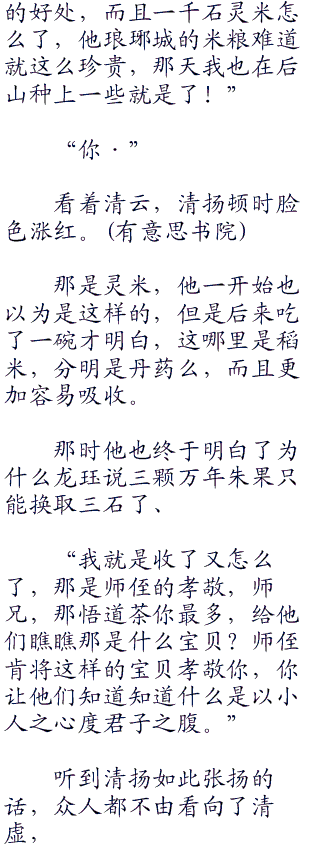 的好处，而且一千石灵米怎
么了，他琅琊城的米粮难道
就这么珍贵，那天我也在后
山种上一些就是了！”
“你·”
看着清云，清扬顿时脸
色涨红。(有意思书院)
那是灵米，他一开始也
以为是这样的，但是后来吃
了一碗才明白，这哪里是稻
米，分明是丹药么，而且更
加容易吸收。
那时他也终于明白了为
什么龙珏说三颗万年朱果只
能换取三石了、
“我就是收了又怎么
了，那是师侄的孝敬，师
兄，那悟道茶你最多，给他
们瞧瞧那是什么宝贝？师侄
肯将这样的宝贝孝敬你，你
让他们知道知道什么是以小
人之心度君子之腹。”
听到清扬如此张扬的
话，众人都不由看向了清
虚，